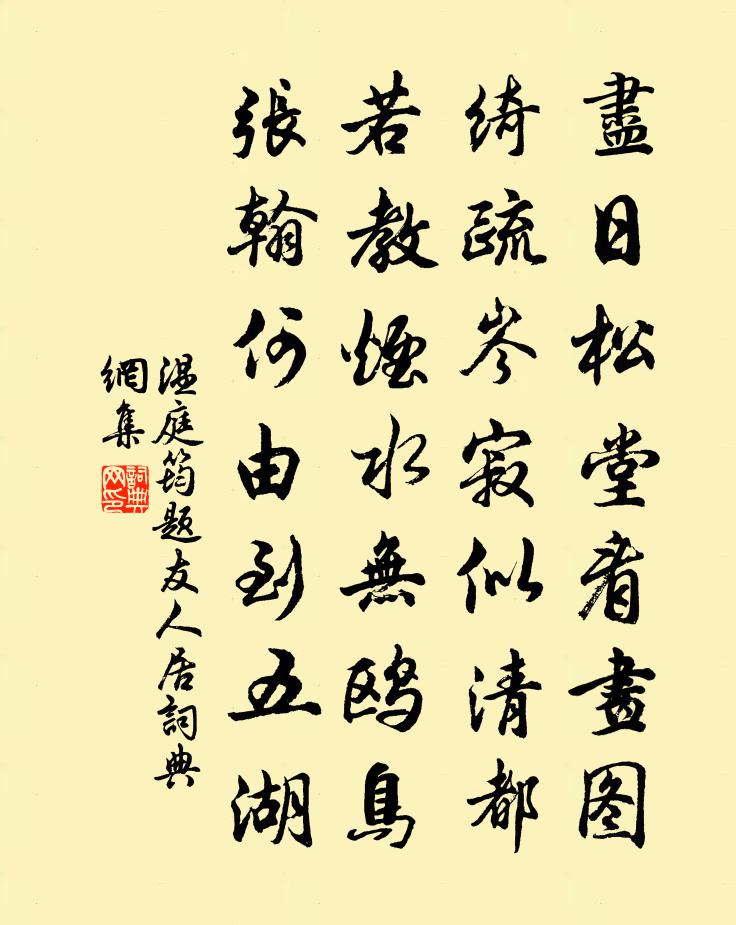 盡日松堂看畫图
綺疏岑寂似清都
若教煙水無鷗鳥
張翰何由到五湖
温庭筠題友人居詞典
網集
詞典
网印